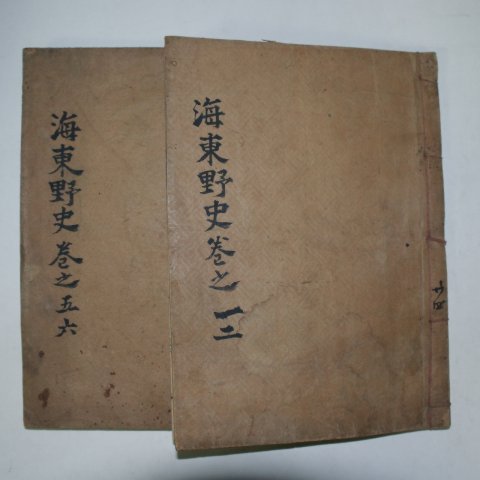 海東野史 卷之一二
海東野史 卷之五六